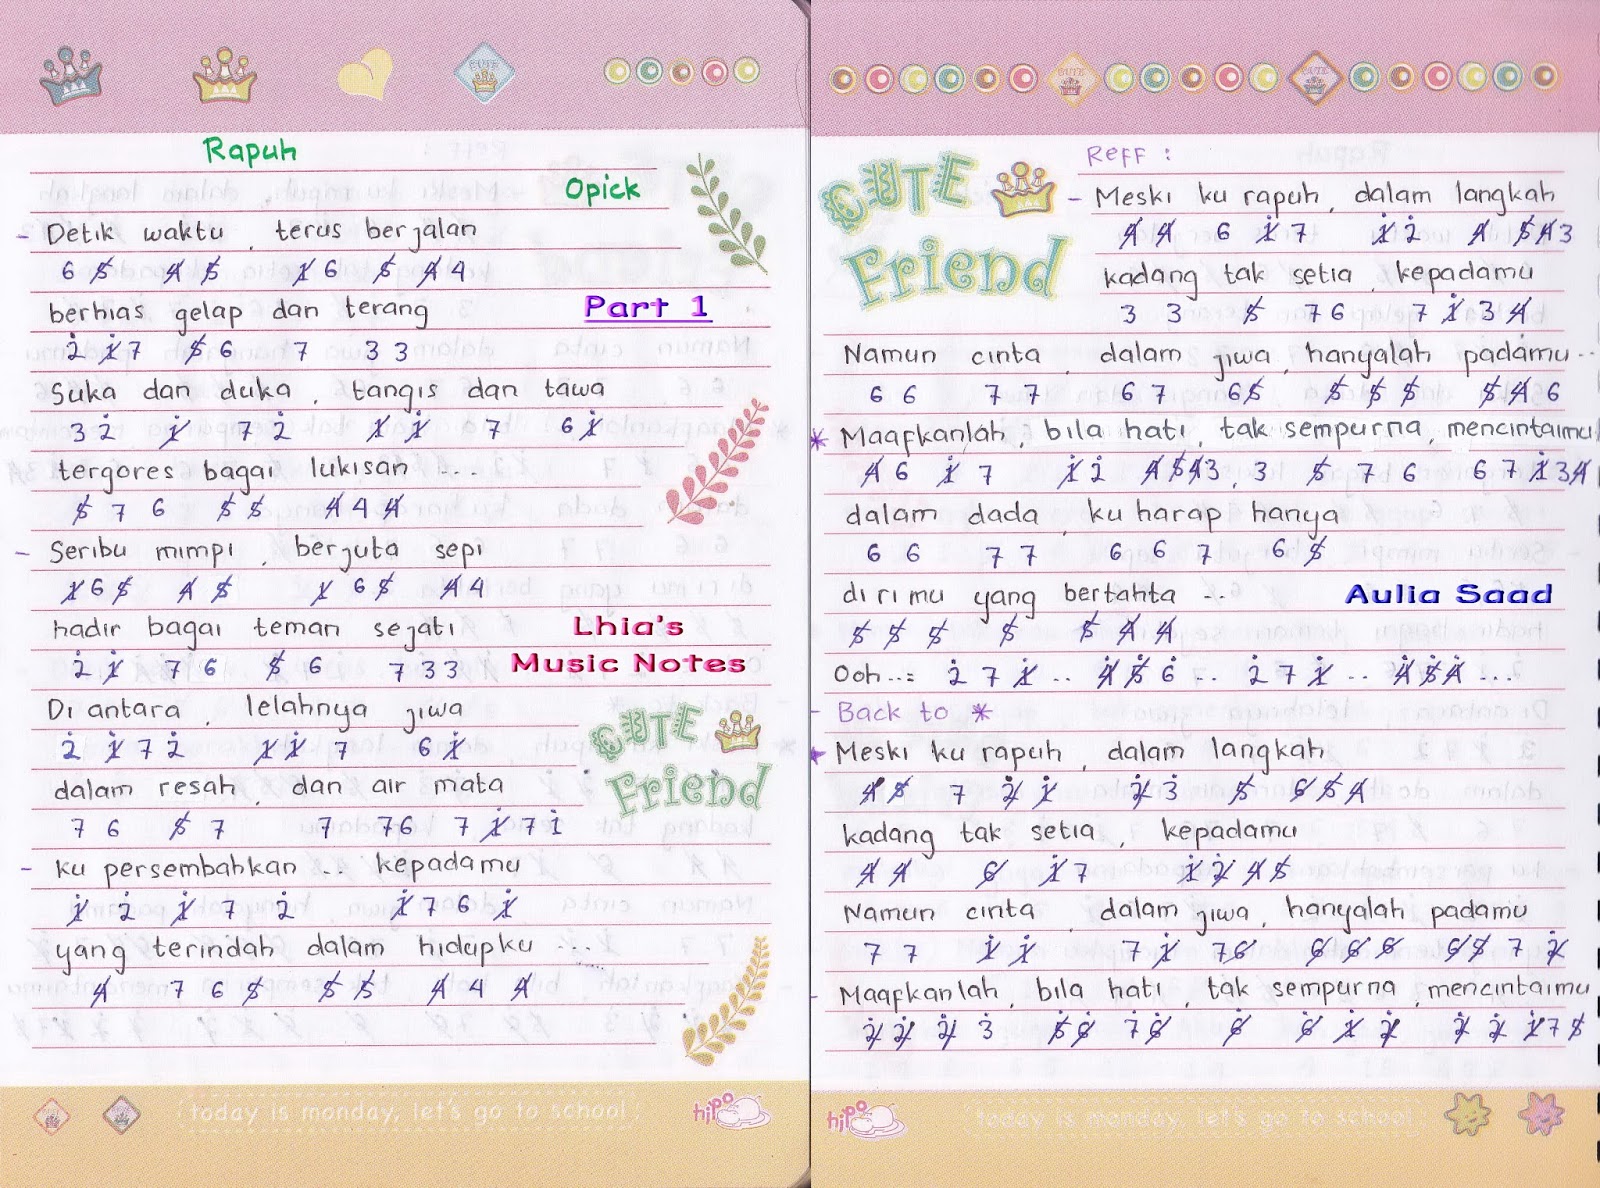 Rapuh
Opick
- Detik waktu, terus berjalan
6 5̸ 4̸ 5̸ 1̸ 6 5̸ 4̸ 4
berhias gelap dan terang
Part 1
2̇ 1̸̇ 7 5̸ 6 7 3 3
Suka dan duka, tangis dan tawa
3 2̇ 1̸̇ 7 2̇ 1̸̇ 1̸̇ 7 6 1̸̇
tergores bagai lukisan ....
5̸ 7 6 5̸ 5̸ 4̸ 4 4̸
- Seribu mimpi, berjuta sepi
1̸ 6 5̸ 4̸ 5̸ 1̸ 6 5̸ 4̸ 4
hadir bagai teman sejati
Lhia's
Music Notes
2̇ 1̸̇ 7 6 5̸ 6 7 3 3
Di antara, lelahnya jiwa
2̇ 1̸̇ 7 2̇ 1̸̇ 1̸̇ 7 6 1̸̇
CUTE
Friend
dalam resah, dan air mata
7 6 5̸ 7 7 7 6 7 1̸̇ 7 1̇
- ku persembahkan ... kepadamu
1̸̇ 2̇ 1̸̇ 7 2̇ 1̸̇ 7 6 1̸̇
yang terindah dalam hidupku ....
4̸ 7 6 5̸ 5̸ 5̸ 4̸ 4 4̸
today is monday, let's go to school
hipo
CUTE
Friend
Reff :
- Meski ku rapuh, dalam langkah
4̸ 4̸ 6 1̸̇ 7 1̸̇ 2̇ 4̸ 5̸ 4̸ 3
kadang tak setia, kepadamu
3 3 5̸ 7 6 7 1̸̇ 3 4̸
Namun cinta, dalam jiwa, hanyalah padamu ...
6 6 7 7 6 7 6 5̸ 5̸ 5̸ 5̸ 5̸ 4̸ 6
* Maafkanlah, bila hati, tak sempurna, mencintaimu
4̸ 6 1̸̇ 7 1̸̇ 2̇ 4̸ 5̸ 4̸ 3, 3 5̸ 7 6 6 7 1̸̇ 3 4̸
dalam dada, ku harap hanya
6 6 7 7 6 6 7 6 5̸
dirimu yang bertahta ...
Aulia Saad
5̸ 5̸ 5̸ 5̸ 5̸ 4̸ 4̸
Ooh...= 2̇ 7 1̸̇ .. 4̸̇ 5̸̇ 6̇ .. 2̇ 7 1̸̇ .. 4̸̇ 5̸̇ 4̸̇ ...
- Back to *
* Meski ku rapuh, dalam langkah
4̸ 5̸ 7 2̸̇ 1̸̇ 2̸̇ 3̇ 5̸ 6̸ 5̸ 4̸
kadang tak setia, kepadamu
4̸ 4̸ 6̸ 1̸̇ 7 1̸̇ 2̸̇ 4̸ 5̸
Namun cinta, dalam jiwa, hanyalah padamu
7 7 1̸̇ 1̸̇ 7 1̸̇ 7 6̸ 6̸ 6̸ 6̸ 6̸ 5̸ 7 2̸̇
- Maafkanlah, bila hati, tak sempurna, mencintaimu
2̸̇ 2̸̇ 2̸̇ 3̇ 5̸̇ 6̸ 7 6̸ 6̸ 6̸ 1̸̇ 2̸̇ 2̸̇ 2̸̇ 1̸̇ 7 5̸
hipo
today is monday, let's go to school